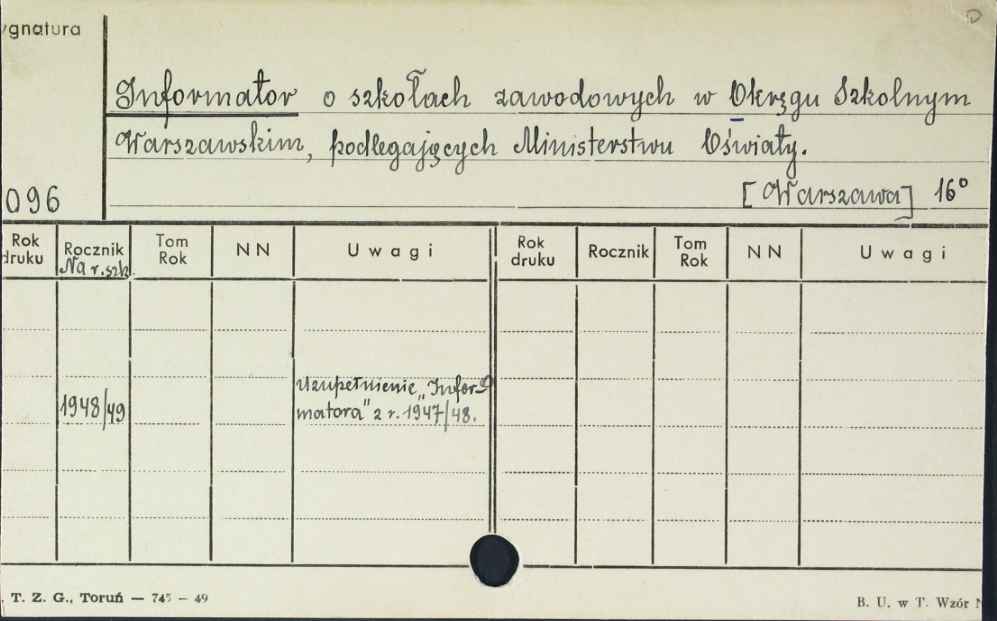 ygnatura
Informator o szkołach zawodowych w Okręgu Szkolnym
Warszawskim, podlegających Ministerstwu Oświaty.
096 [Warszawa] 16°
Rok druku Rocznik Tom Rok NN Uwagi Rok druku Rocznik Tom Rok NN Uwagi
Na r. szk.
1948/49 Uzupełnienie „Infor-
matora" z r. 1947/48.
T. Z. G., Toruń — 745 — 49 B. U. w T. Wzór N